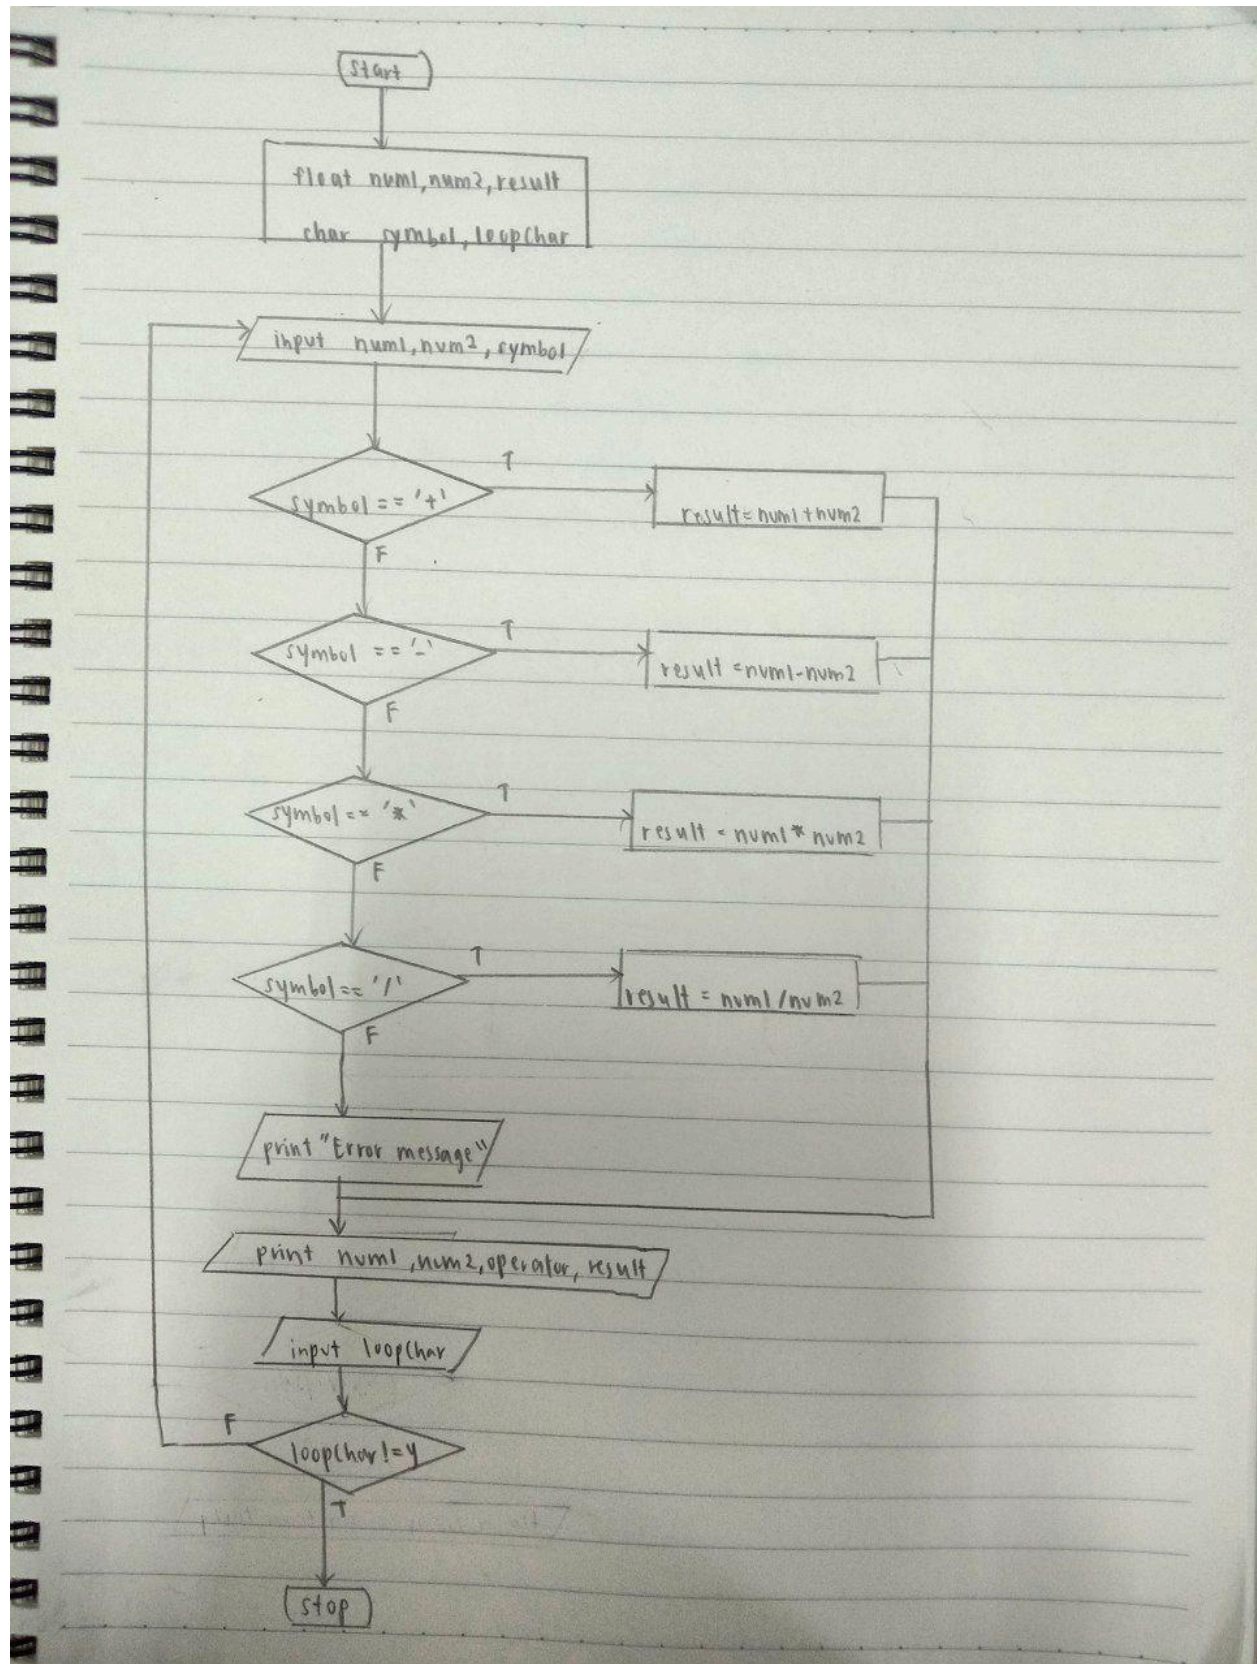 start
float num1,num2,result
char symbol,loopChar
input num1,num2,symbol
symbol == '+'
T
result=num1+num2
F
symbol == '-'
T
result =num1-num2
F
symbol == '*'
T
result = num1 * num2
F
symbol == '/'
T
result = num1 /num2
F
print "Error message"
print num1 ,num2,operator, result
input loopChar
F
loopChar!=y
T
stop